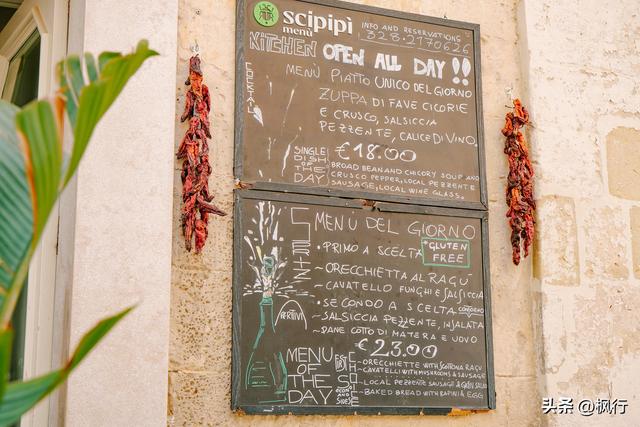 scipipì
menù
INFO AND RESERVATIONS
328-2170626
KITCHEN OPEN ALL DAY !!
COCKTAIL
MENÙ PIATTO UNICO DEL GIORNO
ZUPPA DI FAVE CICORIE
E CRUSCO, SALSICCIA
PEZZENTE, CALICE DI VINO,
€18.00
SINGLE
DISH
OF THE
DAY
BROAD BEAN AND CHICORY SOUP AND
CRUSCO PEPPER, LOCAL PEZZENTE
SAUSAGE, LOCAL WINE GLASS.
SPRITZ
APERITIVI
MENU DEL GIORNO
• PRIMO A SCELTA
*GLUTEN
FREE
~ ORECCHIETTA AL RAGÙ
~ CAVATELLO FUNGHI E SALSICCIA
• SECONDO A SCELTA
~ SALSICCIA PEZZENTE, INSALATA
~ PANE COTTO DI MATERA E UOVO
€23.00
MENU
OF THE
DAY
- ORECCHIETTE WITH SCOTTONA RAGÙ
- CAVATELLI WITH MUSHROOMS & SAUSAGE
- LOCAL PEZZENTE SAUSAGE & GREEN SALAD
- BAKED BREAD WITH RAPINI & EGG
头条 @枫行